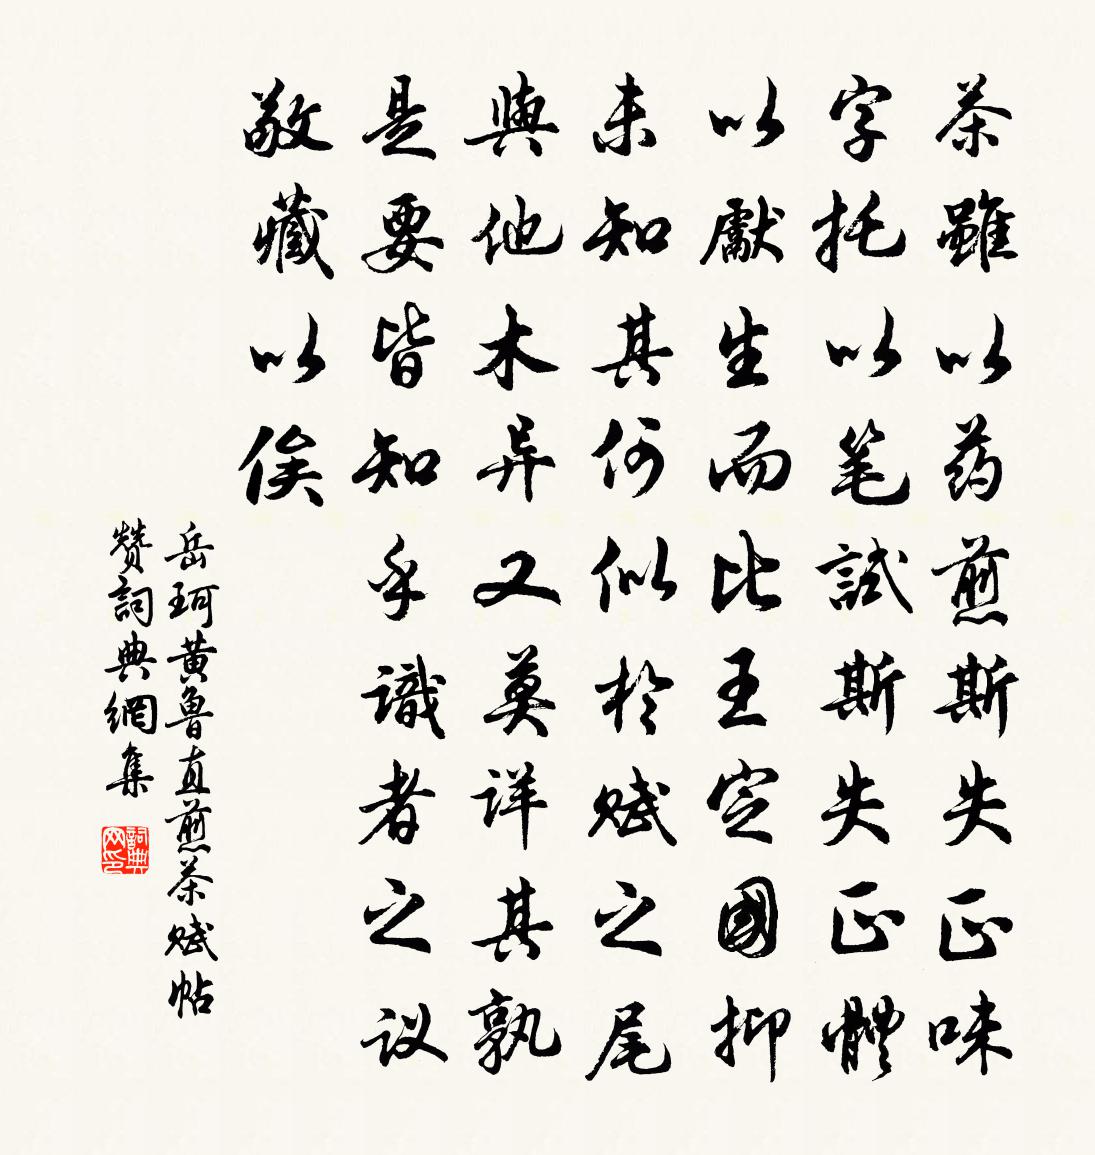 茶雖以药煎斯失正味
字托以笔試斯失正體
以獻生而比王定國抑
未知其何似於赋之尾
與他木异又莫详其孰
是要皆知乎識者之议
敬藏以俟
岳珂黄鲁直煎茶赋帖
赞詞典網集
詞典网印